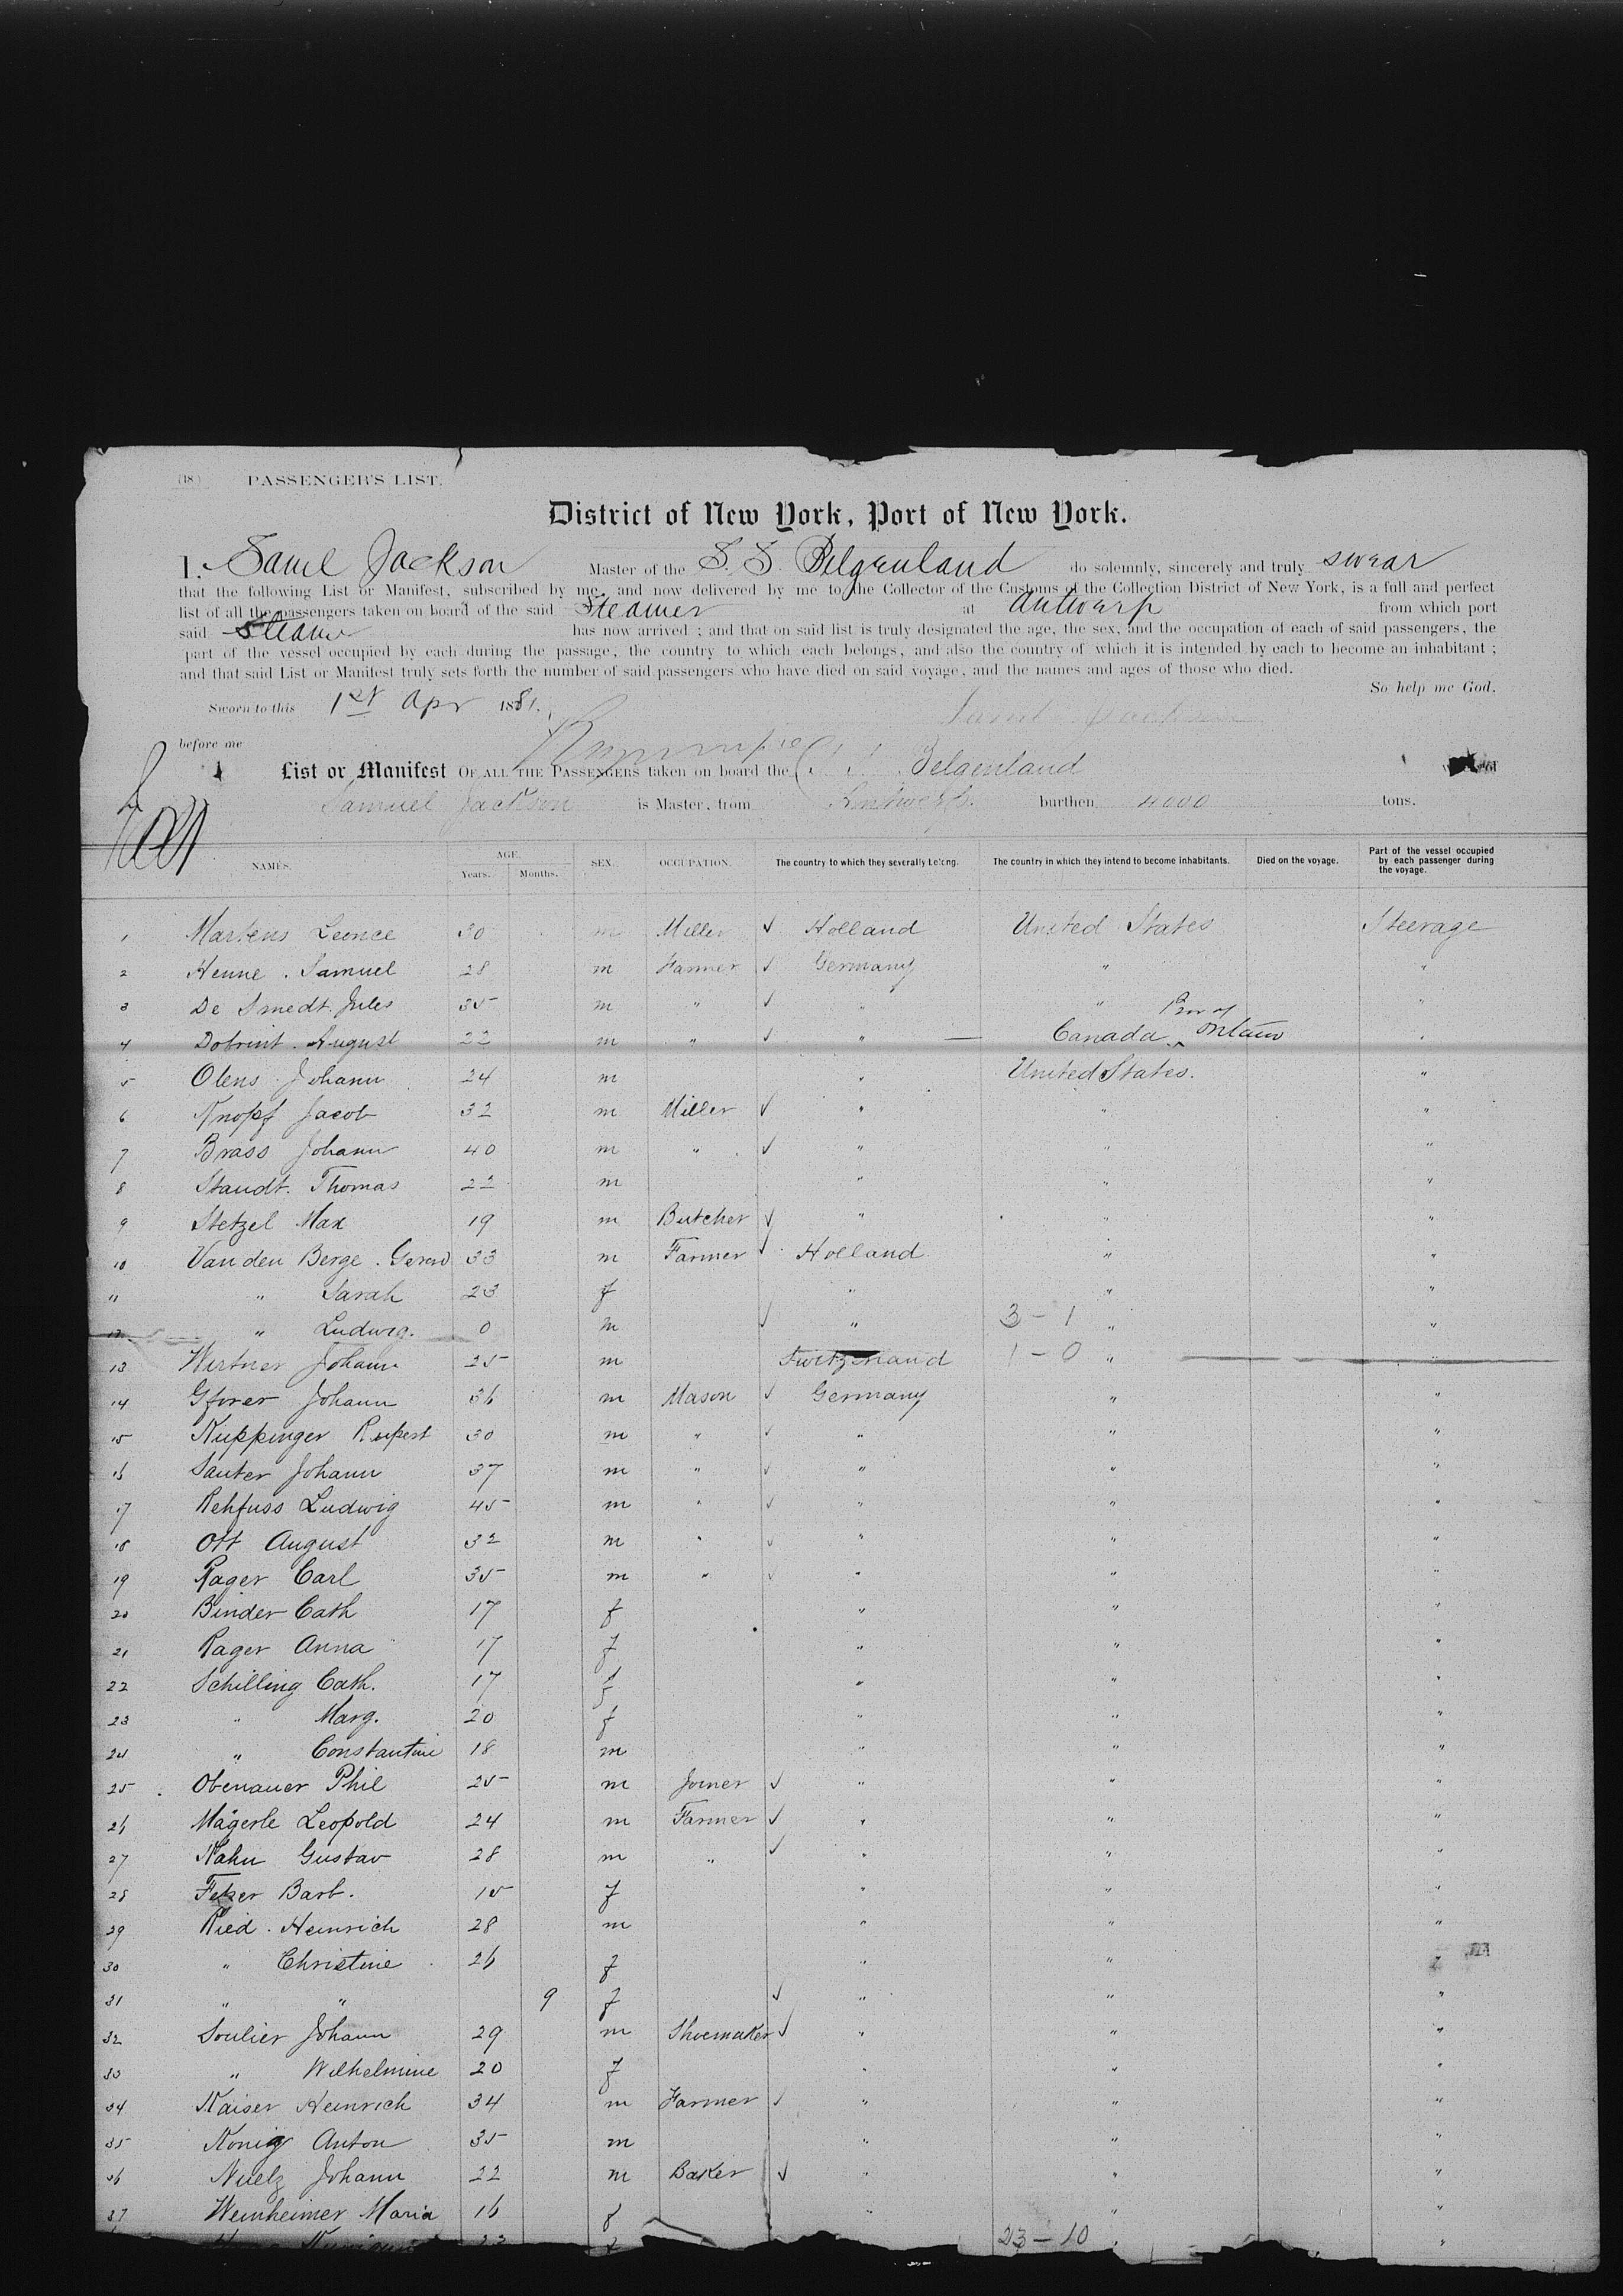 (18) PASSENGER'S LIST.
District of New York, Port of New York.
I, Saml Jackson Master of the S. S. Belgenland do solemnly, sincerely and truly swear
that the following List or Manifest, subscribed by me, and now delivered by me to the Collector of the Customs of the Collection District of New York, is a full and perfect
list of all the passengers taken on board of the said Steamer at Antwerp from which port
said Steamer has now arrived ; and that on said list is truly designated the age, the sex, and the occupation of each of said passengers, the
part of the vessel occupied by each during the passage, the country to which each belongs, and also the country of which it is intended by each to become an inhabitant ;
and that said List or Manifest truly sets forth the number of said passengers who have died on said voyage, and the names and ages of those who died.
So help me God.
Sworn to this 1st Apr 1881. Saml Jackson
before me
List or Manifest OF ALL THE PASSENGERS taken on board the S. S. Belgenland
Samuel Jackson is Master, from Antwerp burthen 4000 tons.
NAMES. AGE. Years. Months. SEX. OCCUPATION. The country to which they severally belong. The country in which they intend to become inhabitants. Died on the voyage. Part of the vessel occupied by each passenger during the voyage.
1 Martens Leonce 30 m Miller ✓ Holland United States Steerage
2 Henne . Samuel 28 m Farmer ✓ Germany " "
3 De Smedt. Jules 35 m " ✓ " " "
4 Dobrint . August 22 m " ✓ " — Canada ^ Prov of Ontario "
5 Olens Johann 24 m " United States. "
6 Knopf Jacob 32 m Miller ✓ " " "
7 Brass Johann 40 m " ✓ " " "
8 Staudt. Thomas 22 m " " "
9 Stetzel Max 19 m Butcher ✓ " " "
10 Van den Berge . Gerard 33 m Farmer ✓ Holland " "
11 " Sarah 23 f " " "
12 " Ludwig. 0 m ✓ " 3 - 1 " "
13 Wertner Johann 25 m Switzerland 1 - 0 " "
14 Gfrorer Johann 36 m Mason ✓ Germany " "
15 Kuppinger Rupert 30 m " ✓ " " "
16 Sauter Johann 37 m " ✓ " " "
17 Rehfuss Ludwig 45 m " ✓ " " "
18 Ott August 32 m " ✓ " " "
19 Rager Carl 35 m " ✓ " " "
20 Binder Cath 17 f " " "
21 Rager Anna 17 f " " "
22 Schilling Cath. 17 f " " "
23 " Marg. 20 f " " "
24 " Constantine 18 m " " "
25 Obenauer Phil 25 m Joiner ✓ " " "
26 Mägerle Leopold 24 m Farmer ✓ " " "
27 Kahn Gustav 28 m " ✓ " " "
28 Barb. 15 f " " "
29 Ried . Heinrich 28 m " " "
30 " Christine 26 f " " "
31 " " 9 f ✓ " " "
32 Soulier Johann 29 m Shoemaker ✓ " " "
33 " Wilhelmine 20 f " " "
34 Kaiser Heinrich 34 m Farmer ✓ " " "
35 Konig Anton 35 m " " "
36 Nuelz Johann 22 m Baker ✓ " " "
37 Weinheimer Maria 16 f " " "
23 - 10